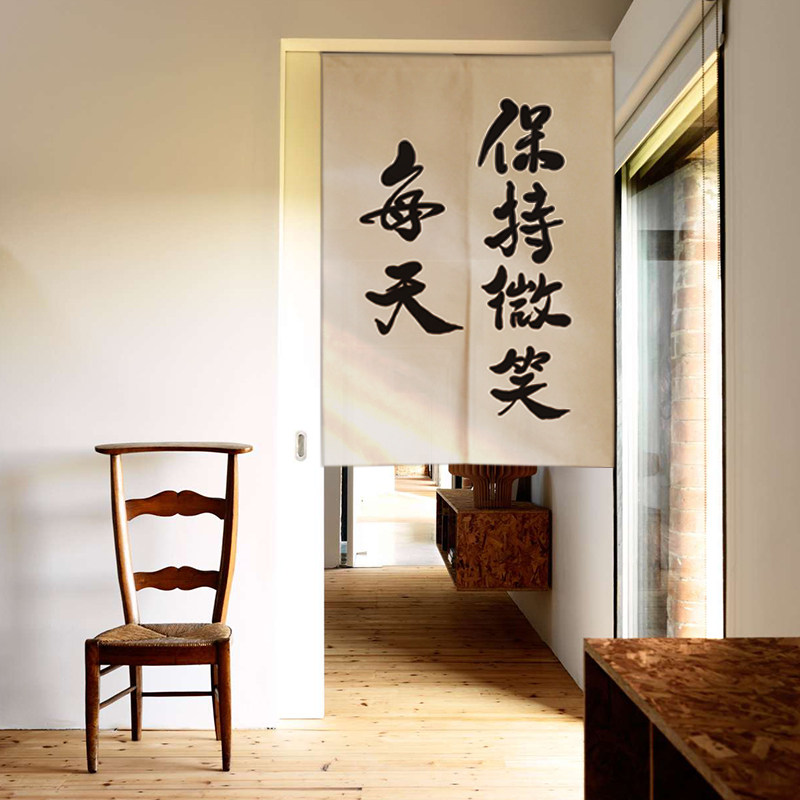 保持微笑
每天